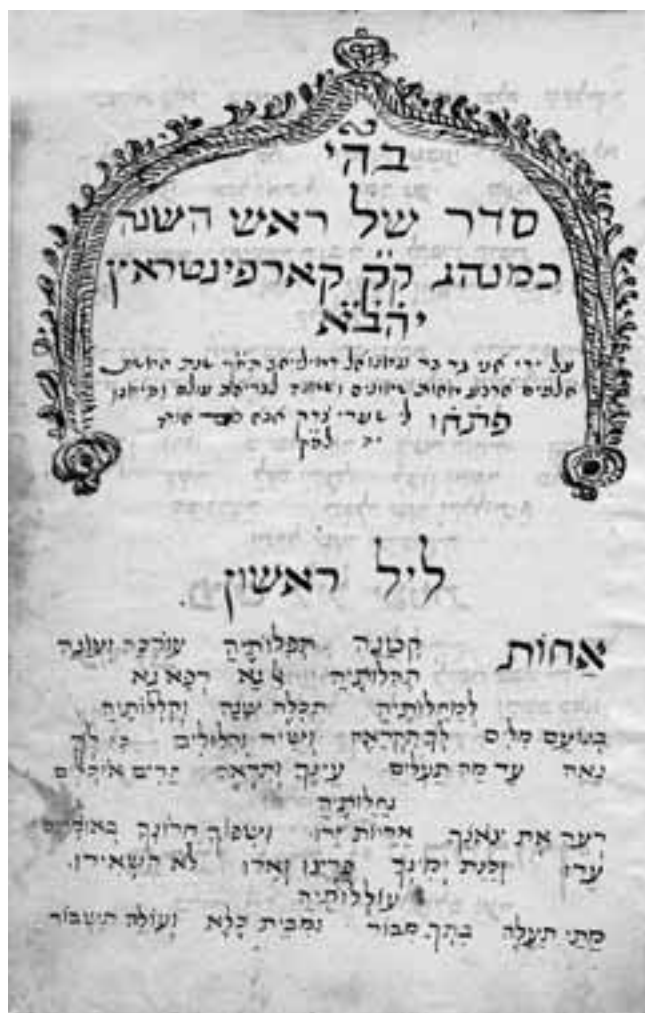 בהי
סדר של ראש השנה
כמנהג ק״ק קארפינטראץ
יהב״א
על ידי אני
אלפים ארבע מאות
פתחו לי שערי צדק אבא
ליל ראשון
אַחוֹת קְטַנָּה תְּפִלּוֹתֶיהָ עוֹרְכָה וְעוֹנָה
תְּהִלּוֹתֶיהָ נָא רְפָא נָא
לְמַחֲלוֹתֶיהָ תִּכְלֶה שָׁנָה וְקִלְלוֹתֶיהָ
בְּנוֹעַם מִלִּים לְךָ תִּקְרָאֶה וְשִׁיר וְהִלּוּלִים כִּי לְךָ
נָאֶה עַד מַה תַּעְלִים עֵינְךָ וְתִרְאֶה זָרִים אוֹכְלִים
נַחֲלוֹתֶיהָ
רְעֵה אֶת צֹאנְךָ אֲרָיוֹת זָרוּ וּשְׁפוֹךְ חֲרוֹנְךָ
עָרוּ וְכַנַּת יְמִינְךָ פָּרְצוּ וְאָרוּ לֹא הִשְׁאִירוּ
עוֹלֵלוֹתֶיהָ
מָתַי תַּעֲלֶה בִתְּךָ מִבּוֹר וּמִבֵּית כֶּלֶא וְעוּלָּהּ תִּשְׁבּוֹר